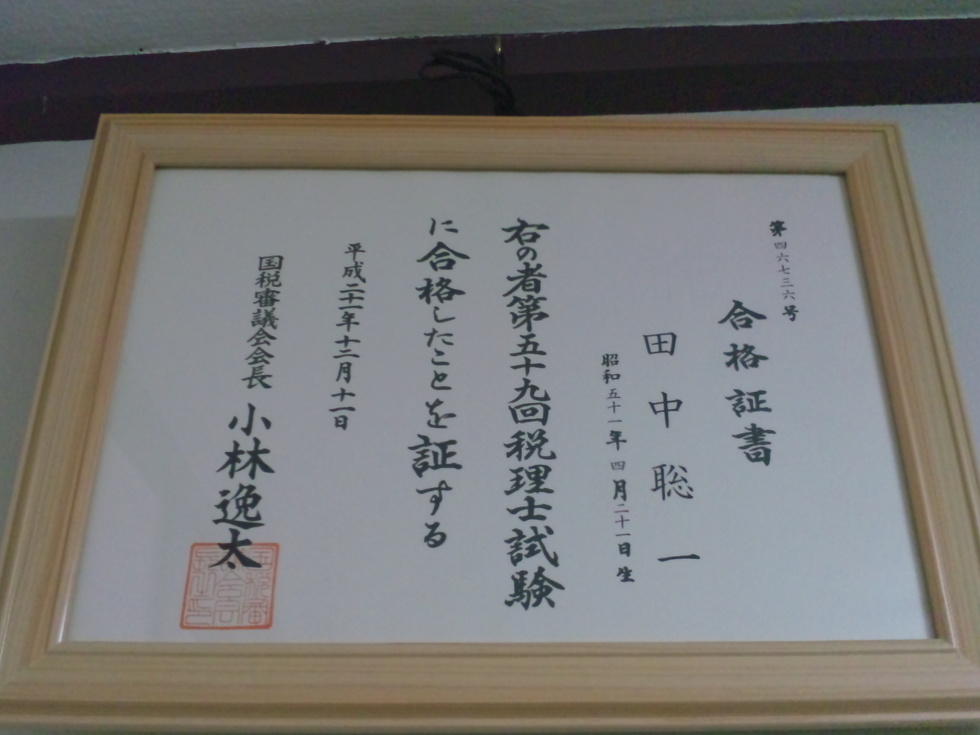 第四六七三六号
合格証書
田中聡一
昭和五十一年四月二十一日生
右の者第五十九回税理士試験
に合格したことを証する
平成二十一年十二月十一日
国税審議会会長 小林逸太